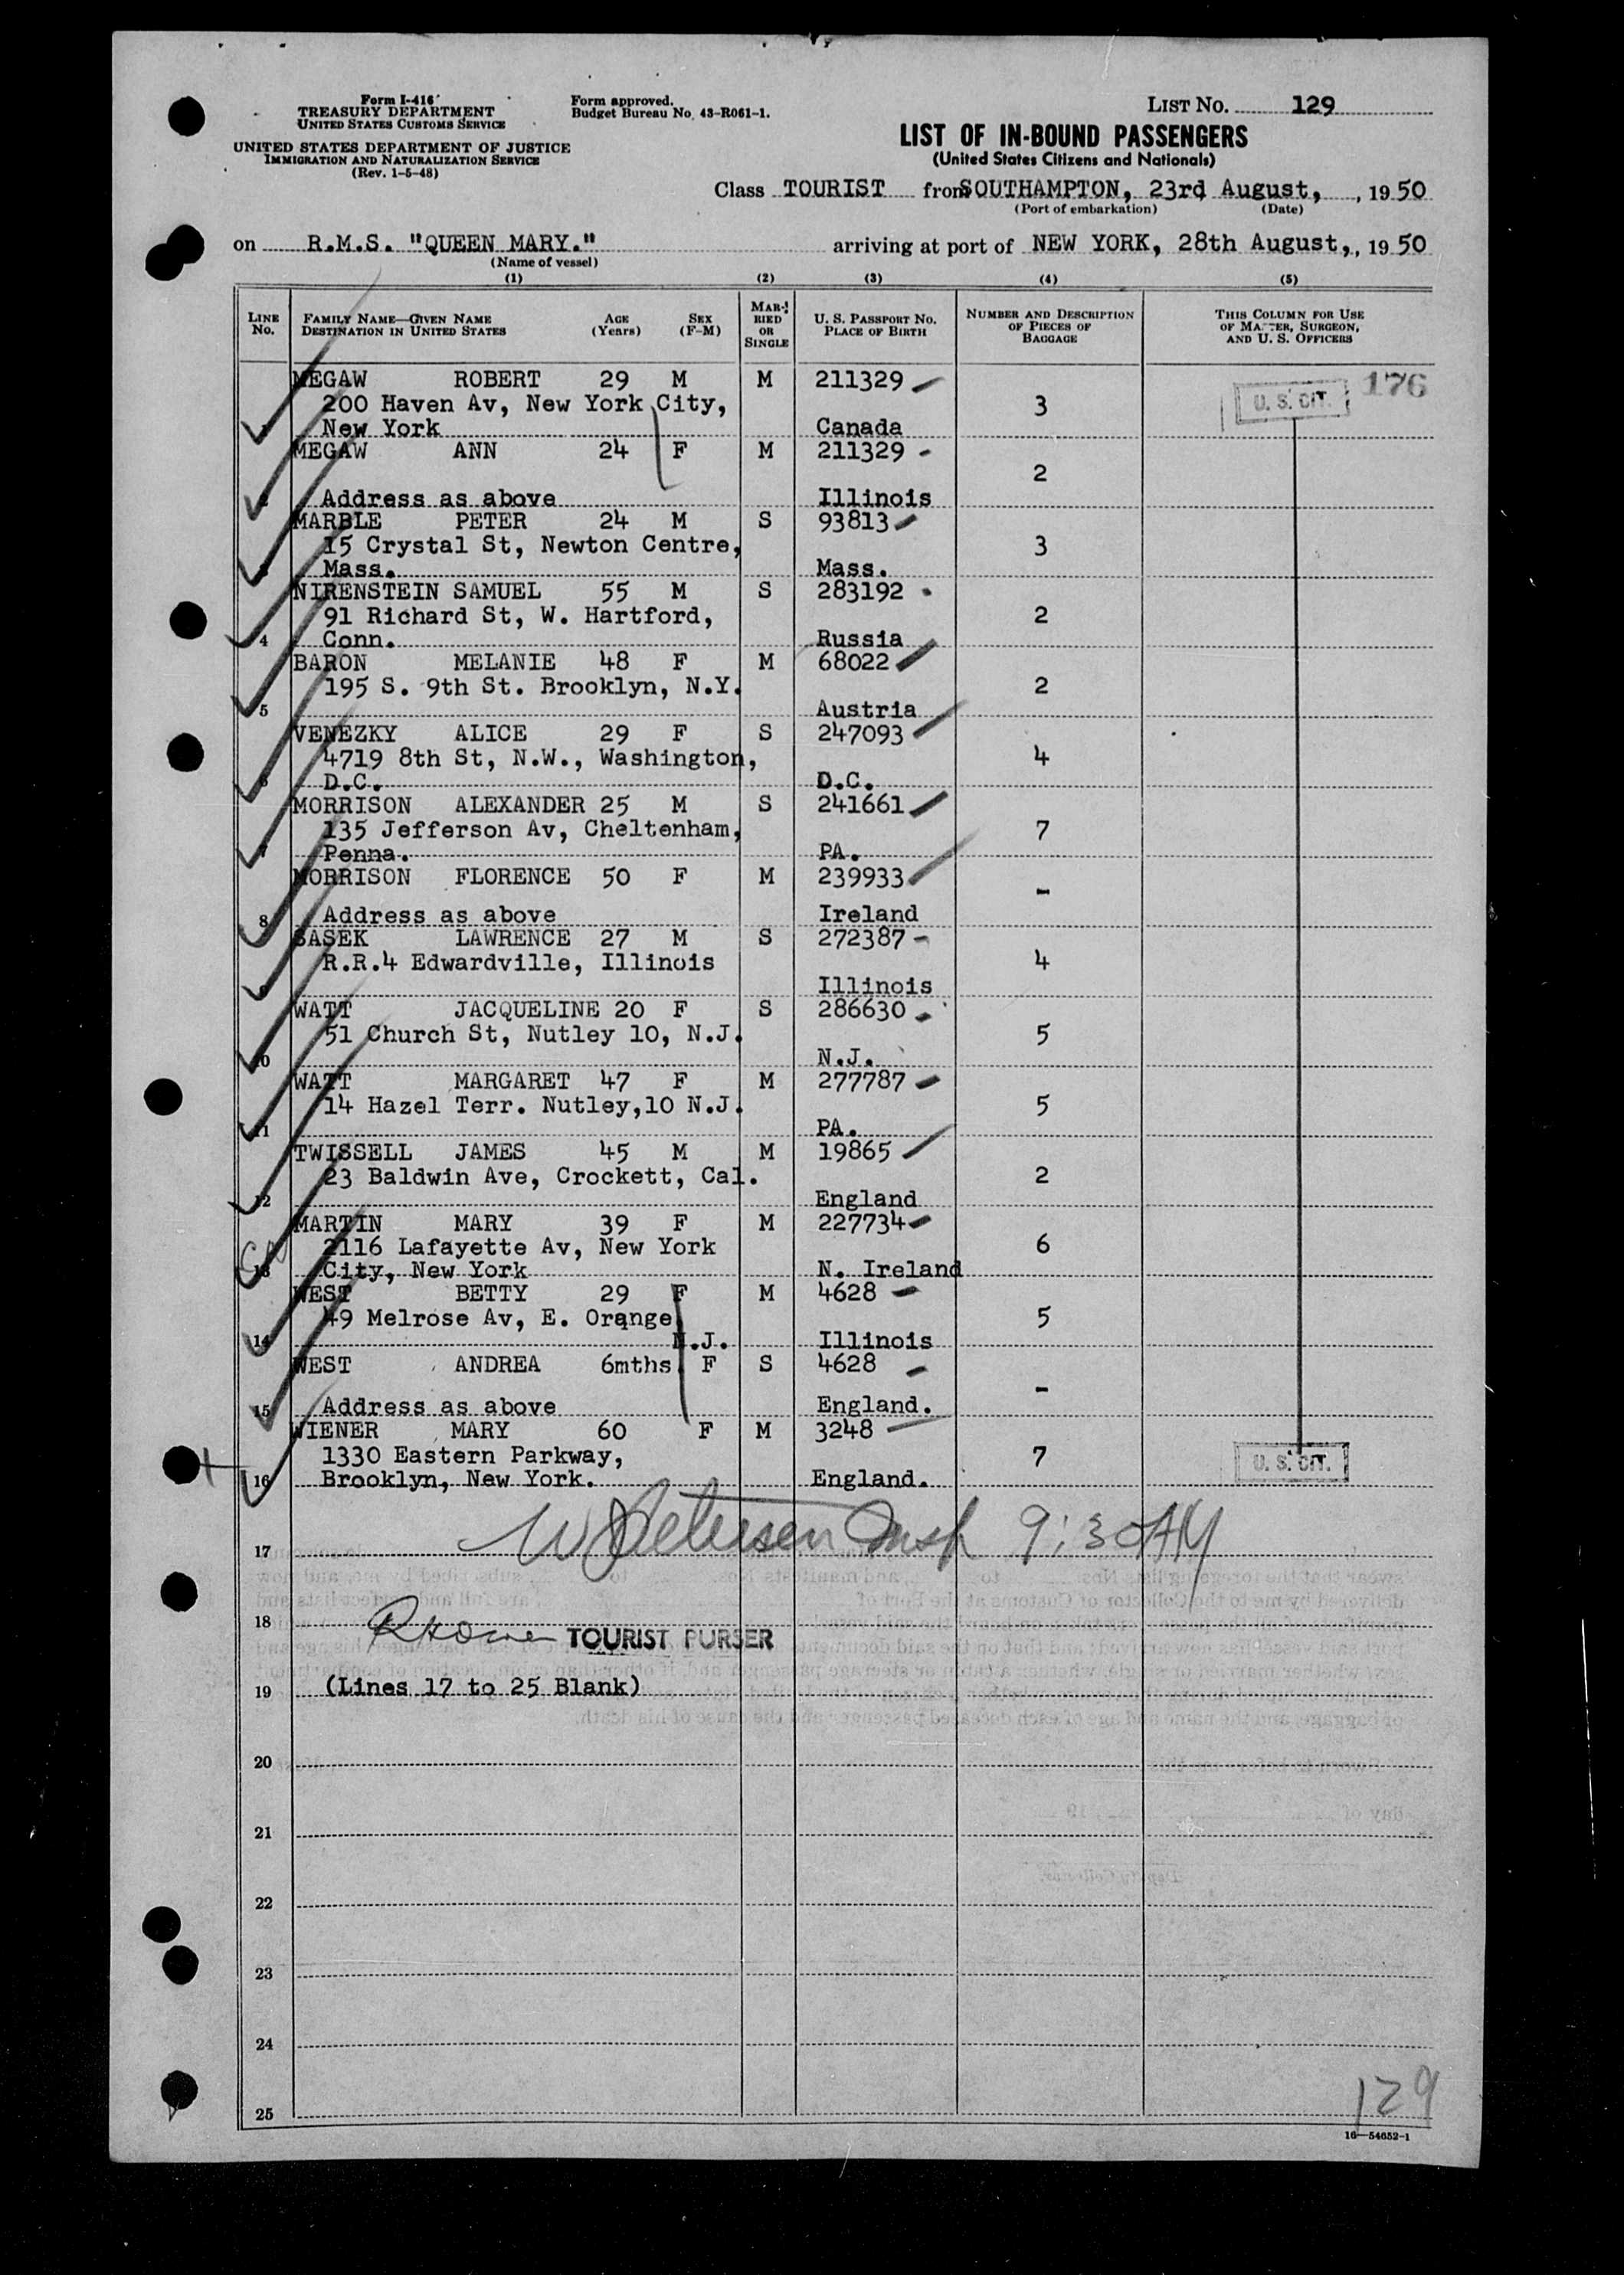 Form I-416
TREASURY DEPARTMENT
UNITED STATES CUSTOMS SERVICE
UNITED STATES DEPARTMENT OF JUSTICE
IMMIGRATION AND NATURALIZATION SERVICE
(Rev. 1-5-48)
Form approved.
Budget Bureau No. 43-R061-1.
LIST NO. 129
LIST OF IN-BOUND PASSENGERS
(United States Citizens and Nationals)
Class TOURIST from SOUTHAMPTON, 23rd August, , 19 50
(Port of embarkation) (Date)
on R.M.S. "QUEEN MARY." arriving at port of NEW YORK, 28th August, , 19 50
(Name of vessel)
(1) (2) (3) (4) (5)
LINE NO. FAMILY NAME—GIVEN NAME DESTINATION IN UNITED STATES AGE (Years) SEX (F-M) MARRIED OR SINGLE U. S. PASSPORT NO. PLACE OF BIRTH NUMBER AND DESCRIPTION OF PIECES OF BAGGAGE THIS COLUMN FOR USE OF MASTER, SURGEON, AND U. S. OFFICERS
MEGAW ROBERT 29 M M 211329 176
200 Haven Av, New York City, 3 U. S. CIT.
New York Canada
MEGAW ANN 24 F M 211329
2
Address as above Illinois
MARBLE PETER 24 M S 93813
15 Crystal St, Newton Centre, 3
Mass. Mass.
NIRENSTEIN SAMUEL 55 M S 283192
91 Richard St, W. Hartford, 2
4 Conn. Russia
BARON MELANIE 48 F M 68022
195 S. 9th St. Brooklyn, N.Y. 2
5 Austria
VENEZKY ALICE 29 F S 247093
4719 8th St, N.W., Washington, 4
6 D.C. D.C.
MORRISON ALEXANDER 25 M S 241661
135 Jefferson Av, Cheltenham, 7
7 Penna. PA.
MORRISON FLORENCE 50 F M 239933
-
8 Address as above Ireland
SASEK LAWRENCE 27 M S 272387
R.R.4 Edwardville, Illinois 4
9 Illinois
WATT JACQUELINE 20 F S 286630
51 Church St, Nutley 10, N.J. 5
10 N.J.
WATT MARGARET 47 F M 277787
14 Hazel Terr. Nutley,10 N.J. 5
11 PA.
TWISSELL JAMES 45 M M 19865
23 Baldwin Ave, Crockett, Cal. 2
12 England
MARTIN MARY 39 F M 227734
2116 Lafayette Av, New York 6
13 City, New York N. Ireland
WEST BETTY 29 F M 4628
49 Melrose Av, E. Orange 5
14 N.J. Illinois
WEST ANDREA 6mths. F S 4628
-
15 Address as above England.
WIENER MARY 60 F M 3248
1330 Eastern Parkway, 7 U. S. CIT.
16 Brooklyn, New York. England.
Petersen Insp 9:30 AM
17
18 TOURIST PURSER
19 (Lines 17 to 25 Blank)
20
21
22
23
24
25
129
16—54652-1